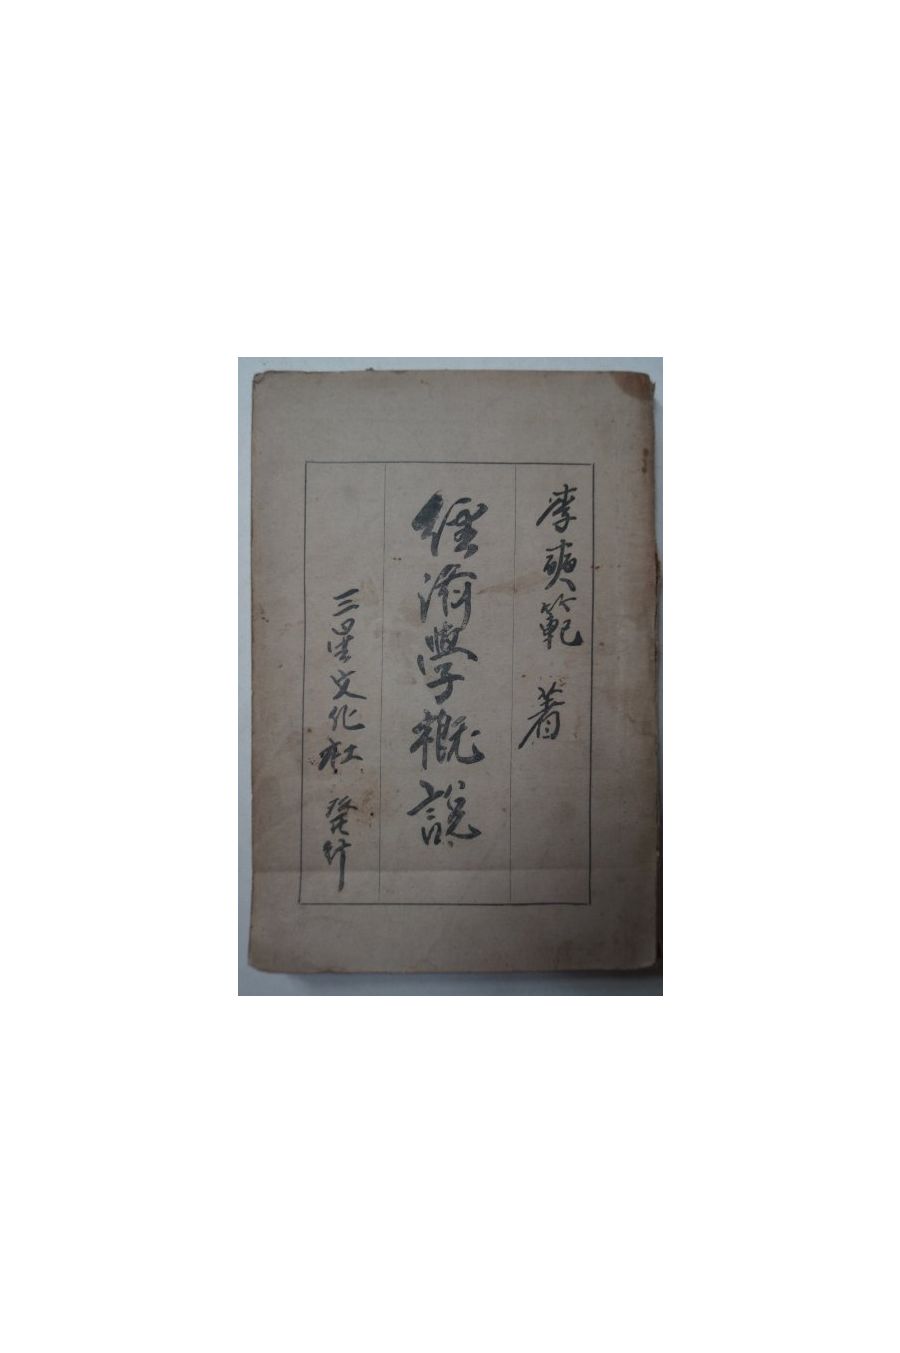 李奭範 著
經済學概說
三星文化社 發行